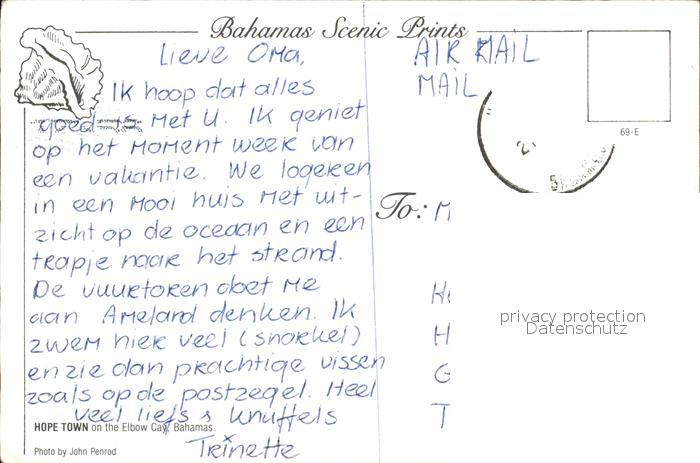 Bahamas Scenic Prints
Lieve Oma,
Ik hoop dat alles
goed is met U. Ik geniet
op het moment week van
een vakantie. We logeren
in een mooi huis met uit-
zicht op de oceaan en een
trapje naar het strand.
De vuurtoren doet me
aan Ameland denken. Ik
zwem hier veel (snorkel)
en zie dan prachtige vissen
zoals op de postzegel. Heel
veel liefs & knuffels
Trinette
HOPE TOWN on the Elbow Cay, Bahamas.
Photo by John Penrod
AIR MAIL
MAIL
69-E
To: M
H
H
G
T
privacy protection
Datenschutz